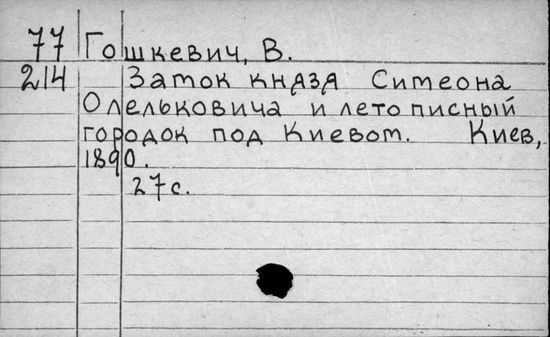 77 Гошкевич, В.
214 Замок князя Симеона
Олельковича и летописный
городок под Киевом. Киев,
1890.
27с.